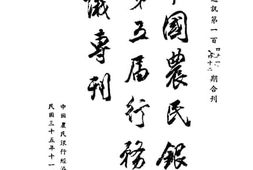 通訊第一百四十一、四十二期合刊
中國農民銀
第五屆行務
議專刊
中國農民銀行經濟
民國三十五年十一